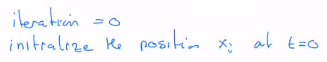 iteration = 0
initialize the position xᵢ at t=0